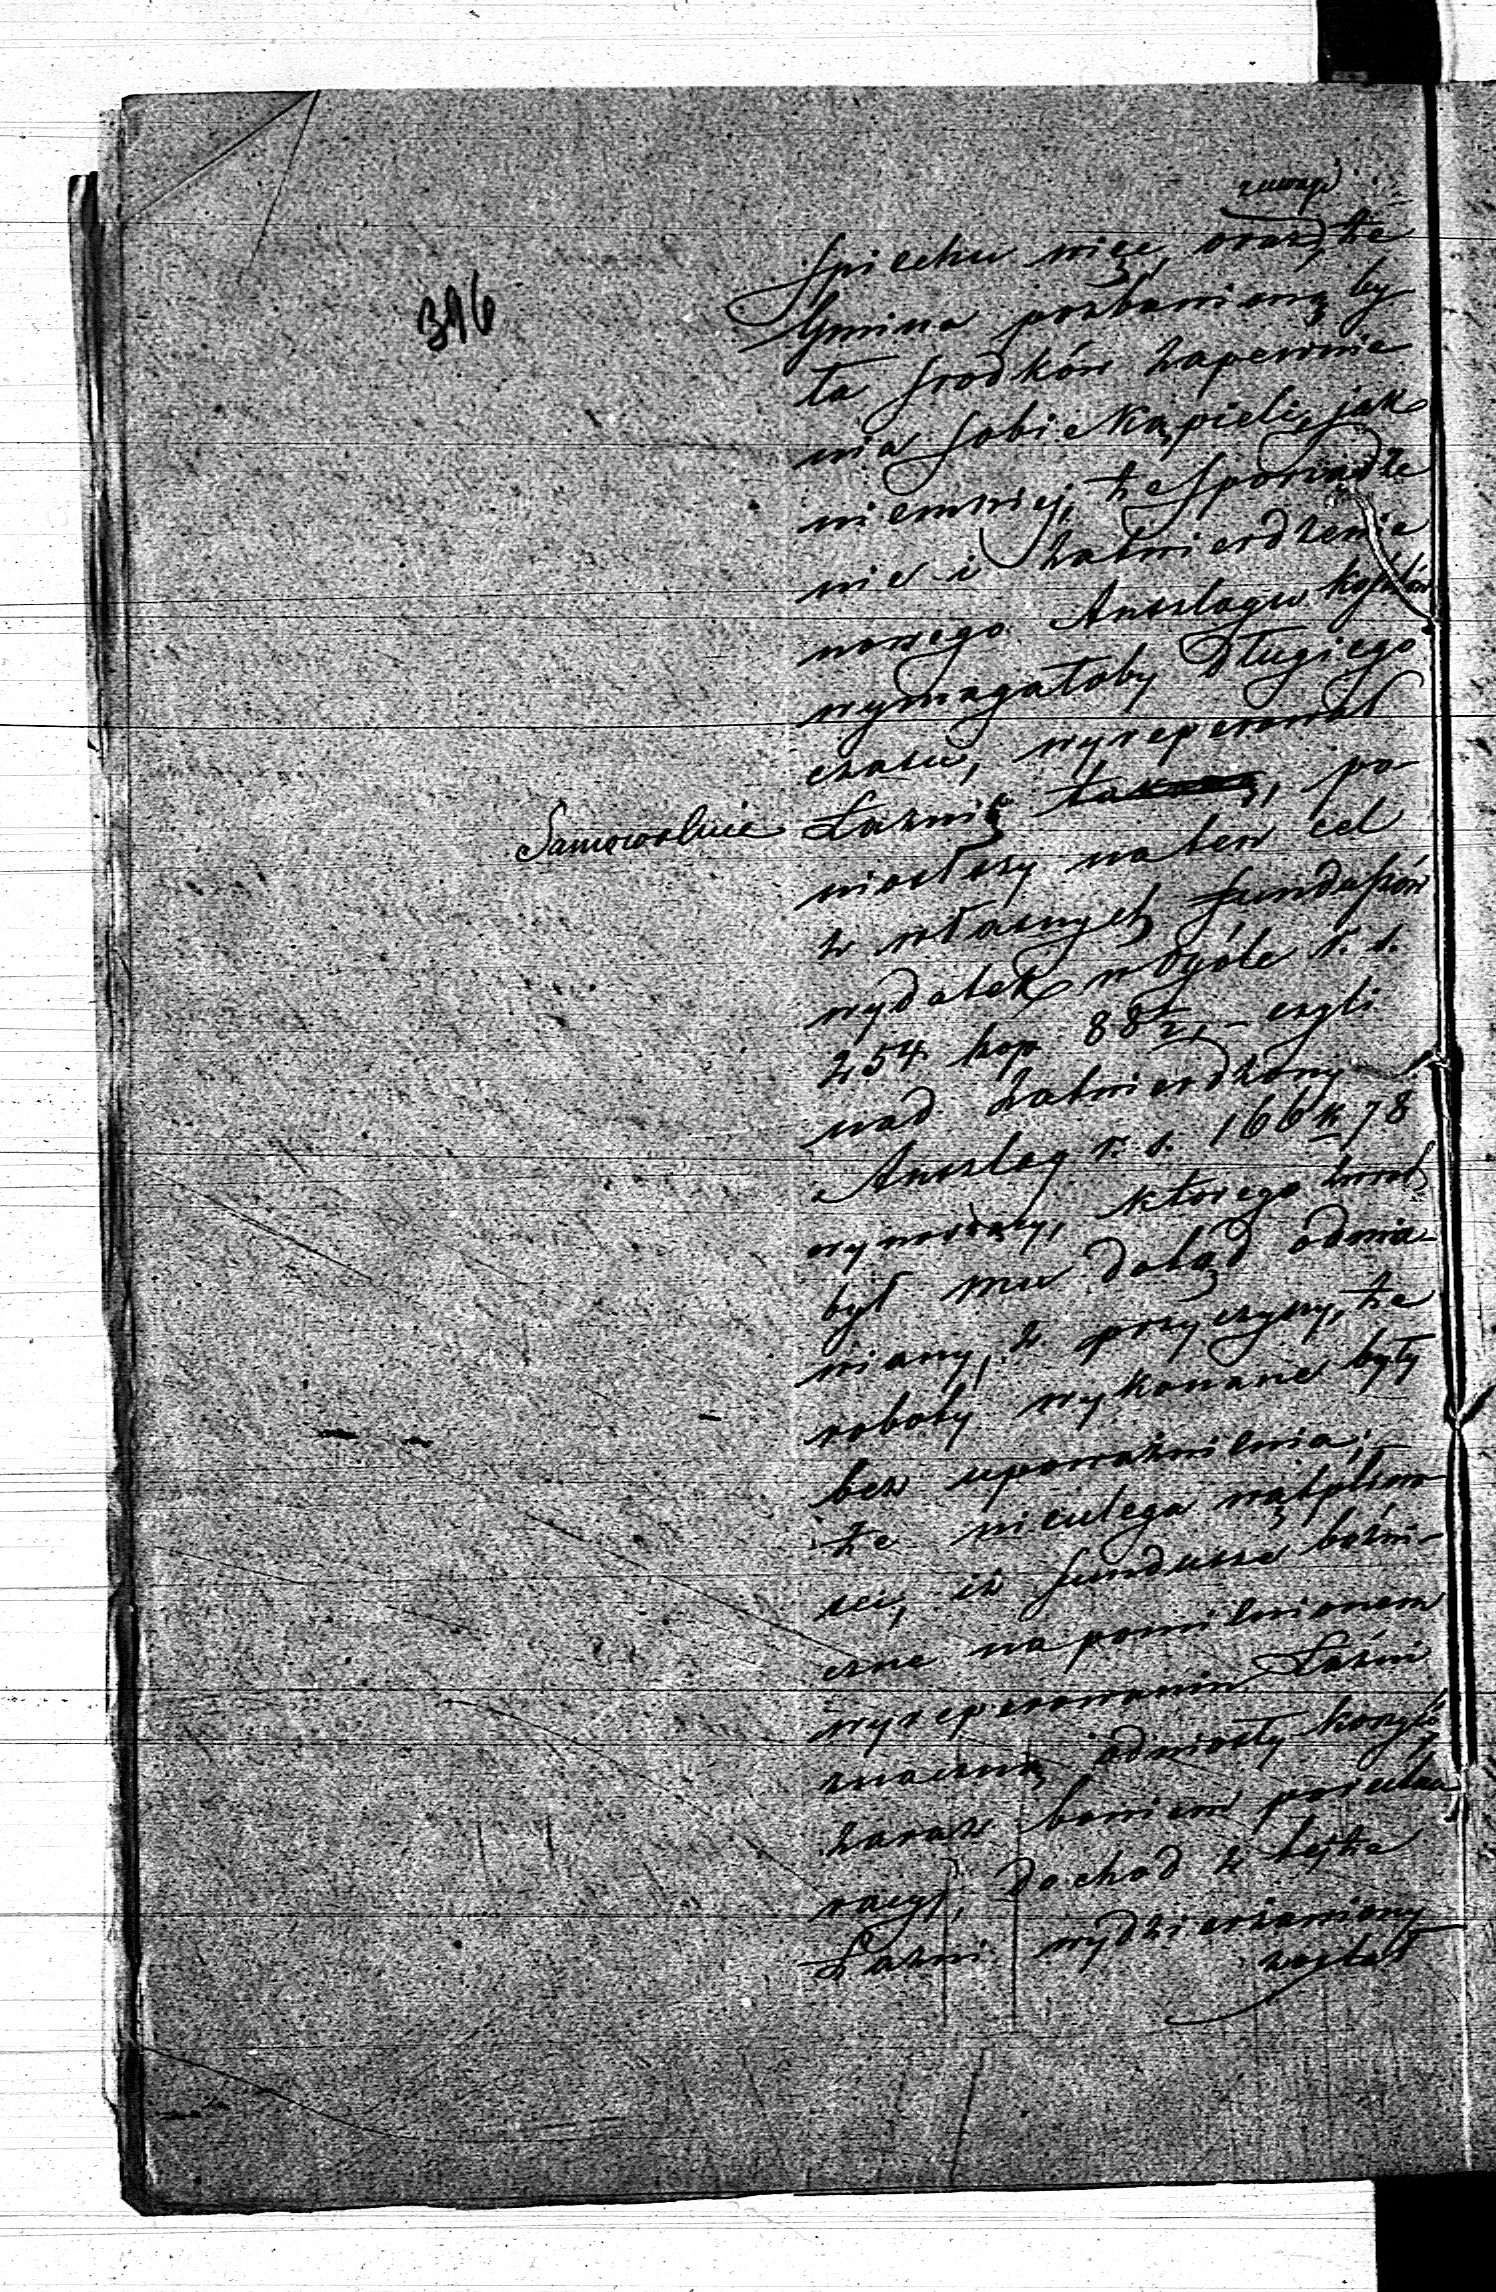 396
zuwagi
spiechu więc, oraz, że
Gmina pozbawioną by
ła srodków zapewnie
nia sobie Kąpieli, jak
niemniej, że sporządze
nie i zatwierdzenie
nowego Anszlagu kosztów
wymagałoby Długiego
czasu, wyreperował
Samowolnie Łaznię, po-
niosłszy na ten cel
z własnych funduszów
wydatek w ogóle r. s.
254 kop 88½, – czyli
nad zatwierdzony
Anszlag r. s. 166 k 78
wynoszący, którego zwrot
był mu dotąd odma-
wiany, z przyczyny, że
roboty wykonane były
bez upoważnienia;
że nieulega wątpliwo
sci, iż fundusze bożni-
czne na pomienionem
wyreperowaniu Łaźni
znaczną odniosły korzyść
zaraz bowiem po
racyi, Dochod z tejże
Łazni wydzierżawiony
został